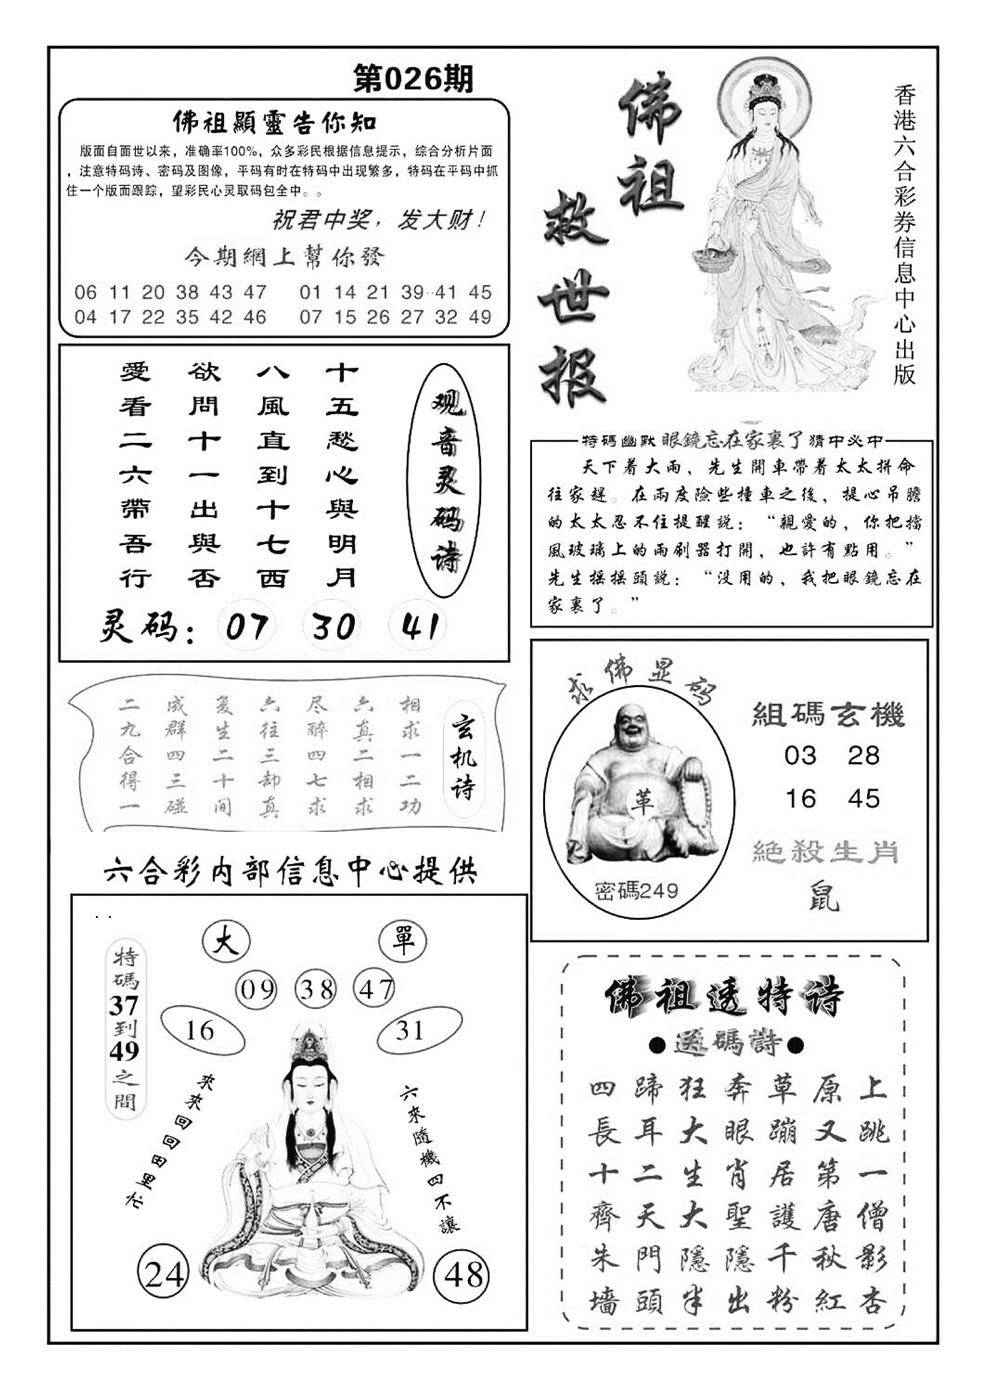 第026期
佛祖顯靈告你知
版面自面世以来，准确率100%，众多彩民根据信息提示，综合分析片面
，注意特码诗、密码及图像，平码有时在特码中出现繁多，特码在平码中抓
住一个版面跟踪，望彩民心灵取码包全中。。
祝君中奖，发大财！
今期網上幫你發
06 11 20 38 43 47 01 14 21 39 41 45
04 17 22 35 42 46 07 15 26 27 32 49
佛祖
救世报
香港六合彩券信息中心出版
观音灵码诗
十五愁心與明月
八風直到十七西
欲問十一出與否
愛看二六帶吾行
灵码：07 30 41
特碼幽默 眼鏡忘在家裏了 猜中必中
天下着大雨，先生開車帶着太太拼命
往家趕。在兩度險些撞車之後，提心吊膽
的太太忍不住提醒説：“親愛的，你把擋
風玻璃上的雨刷器打開，也許有點用。”
先生摇摇頭説：“没用的，我把眼鏡忘在
家裏了。”
玄机诗
相求一二功
六真二相求
尽醉四七求
六往三却真
复生二十间
成群四三碰
二九合得一
求佛显码
革
密碼249
組碼玄機
03 28
16 45
絕殺生肖
鼠
六合彩内部信息中心提供
特碼37到49之間
大
單
09 38 47
16
31
來來回回田里忙
六來隨機四不讓
24
48
佛祖透特诗
●透碼詩●
四蹄狂奔草原上
長耳大眼蹦又跳
十二生肖居第一
齊天大聖護唐僧
朱門隱隱千秋影
墻頭半出粉紅杏